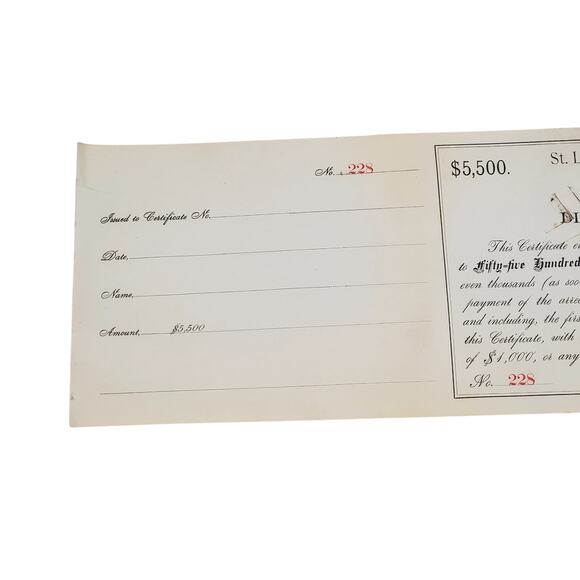 No. 228
Issued to Certificate No.
Date,
Name,
Amount, $5,500
$5,500.
St. L
DI
This Certificate e
to Fifty-five Hundred
even thousands (as soo
payment of the arre
and including, the firs
this Certificate, with
of $1,000, or any
No. 228